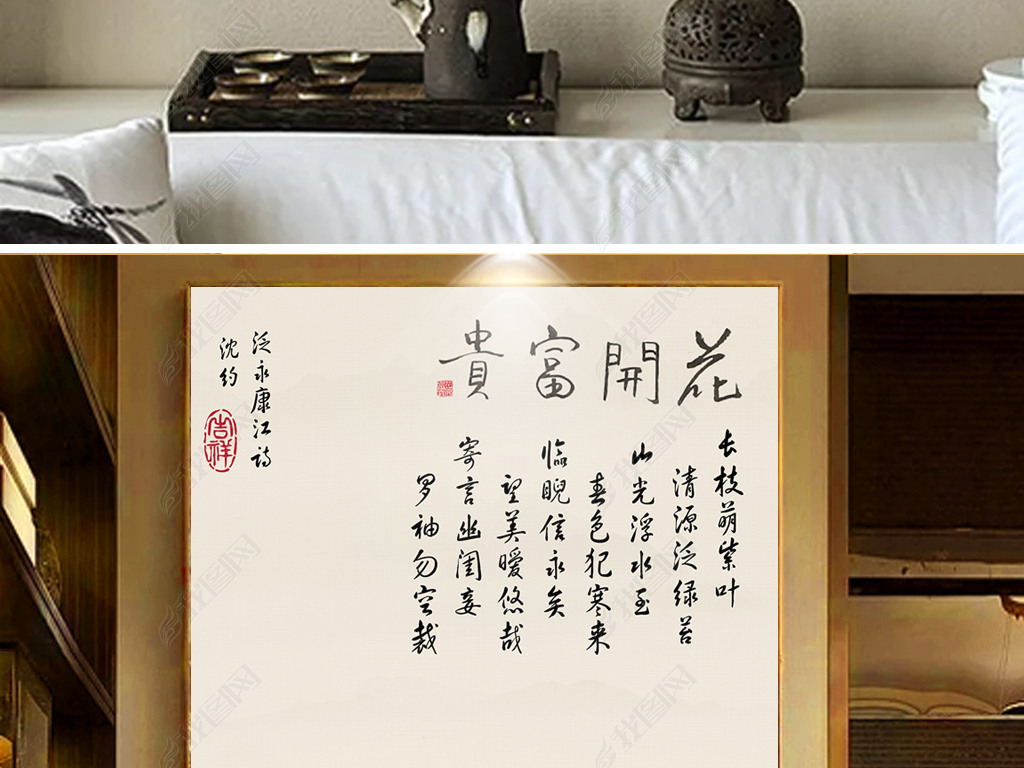 花開富貴
长枝萌紫叶
清源泛绿苔
山光浮水至
春色犯寒来
临睨信永矣
望美暖悠哉
寄言幽闺妾
罗袖勿空裁
泛永康江诗
沈约
吉祥
我图网